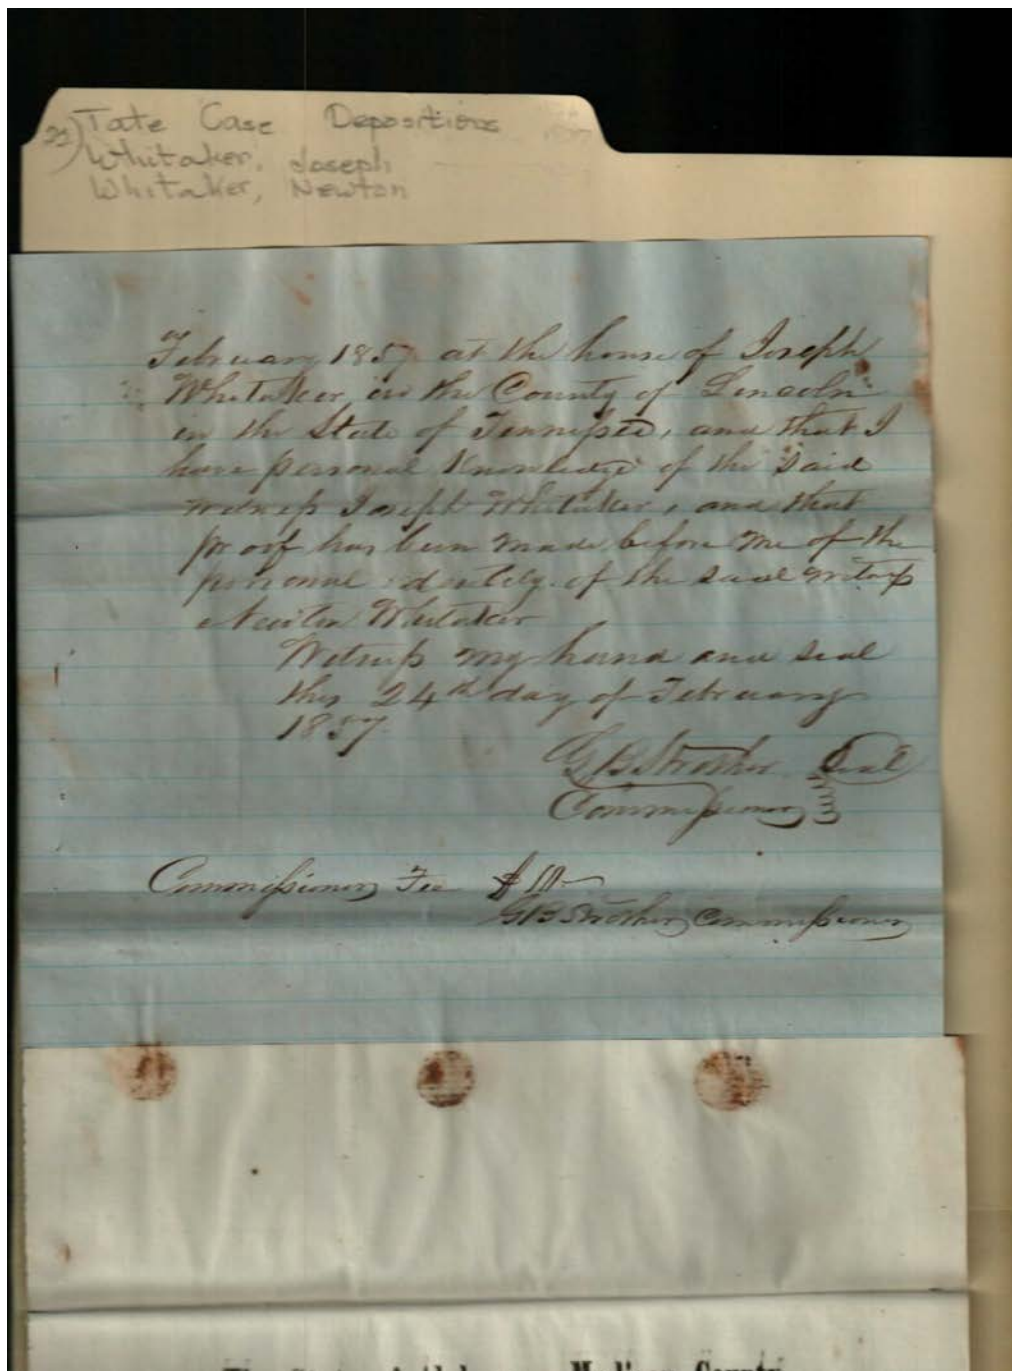 21) Tate Case Depositions
Whitaker, Joseph
Whitaker, Newton
February 1857 at the house of Joseph
Whitaker, in the County of Lincoln
in the State of Tennessee, and that I
have personal Knowledge of the said
witness Joseph Whitaker, and that
proof has been made before me of the
personal identity of the said witness
Newton Whitaker
Witness my hand and seal
this 24th day of February
1857
G B Strother Seal
Commissioner
Commissioners Fee $10—
G B Strother Commissioner
Madison County